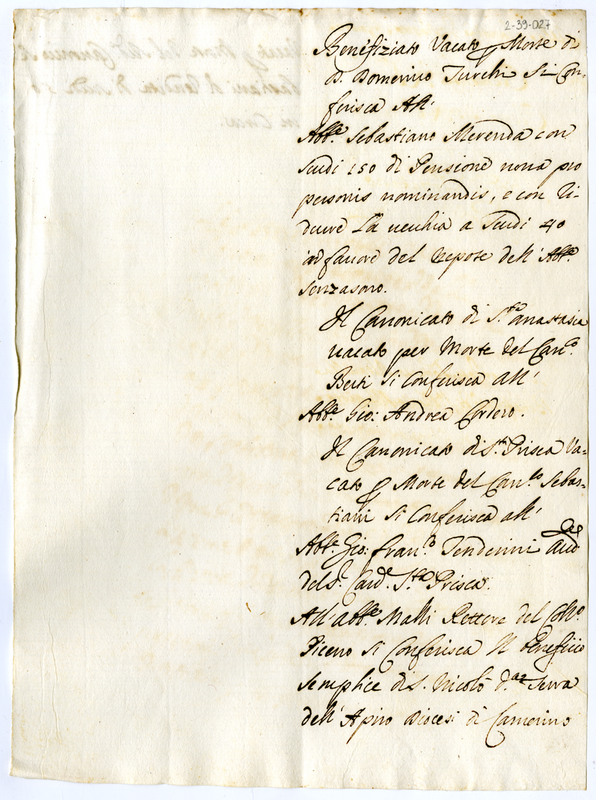 2-39-027
Benefiziato Vacato p Morte di
D. Domenico Turchi Si Con-
ferisca All'
Abb.e Sebastiano Merenda con
Scudi 150 di Pensione nona pro
personis nominandis, e con Ri-
durre La vecchia a Scudi 40
à favore del Nepote dell'Abb.e
Senzasono.
Il Canonicato di S.ta Anastasia
vacato per Morte del Can.co
Berti Si Conferisca all'
Abb.e Gio: Andrea Cordero.
Il Canonicato di S.ta Prisca Va-
cato p Morte del Can.co Sebas-
tiani Si Conferisca all'
Abb.e Gio: Fran.co Tenderini Aud.re
del S.r Card.e S.ta Prisca.
All'abb.e Malli Rettore del Coll.o
Piceno Si Conferisca Il Benefico
Semplice di S. Nicolò della Serra
dell'Apiro Diocesi di Camerino